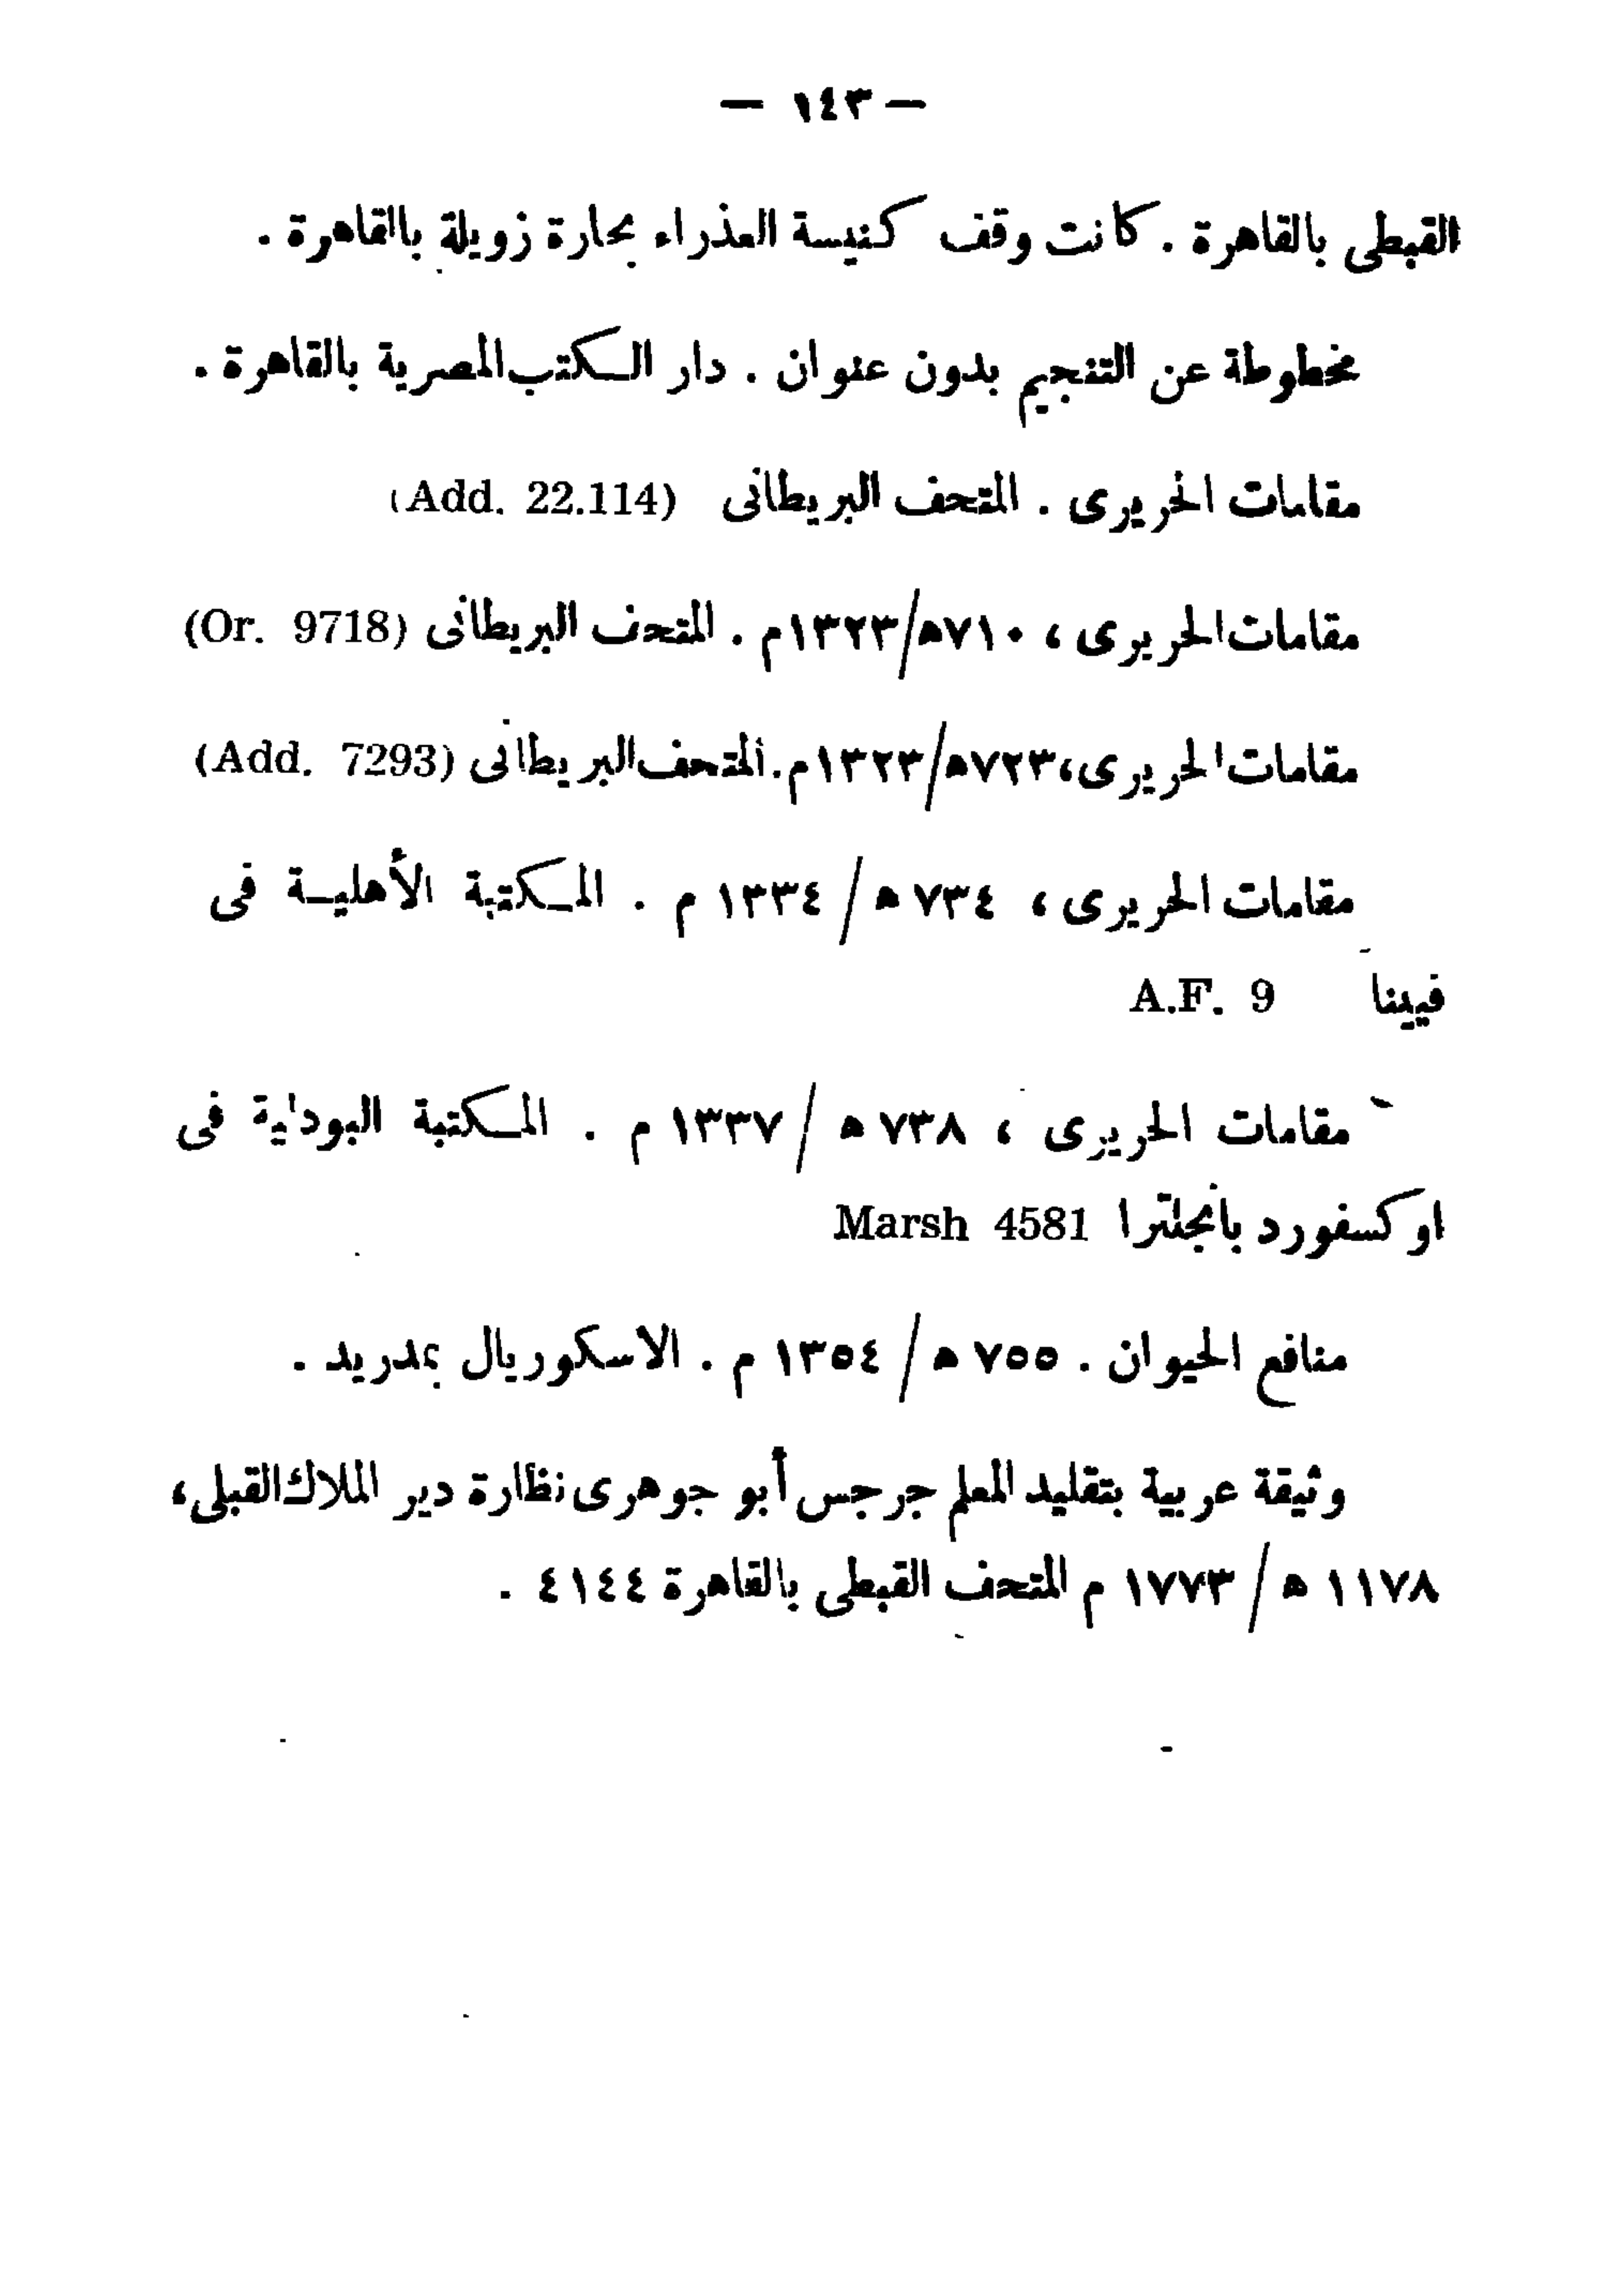 — ١٤٣ —
القبطى بالقاهرة . كانت وقف كنيسة العذراء بحارة زويلة بالقاهرة .
مخطوطة عن التنجيم بدون عنوان . دار الكتب المصرية بالقاهرة .
مقامات الحريرى . المتحف البريطانى (Add. 22.114)
مقامات الحريرى ، ٧١٠ﻫ/١٣٢٣م . المتحف البريطانى (Or. 9718)
مقامات الحريرى، ٧٢٣ﻫ/١٣٢٣م. المتحف البريطانى (Add. 7293)
مقامات الحريرى ، ٧٣٤ ﻫ / ١٣٣٤ م . المكتبة الأهلية فى
فيينا A.F. 9
مقامات الحريرى ، ٧٣٨ ﻫ / ١٣٣٧ م . المكتبة البودلية فى
اوكسفورد بانجلترا Marsh 4581
منافع الحيوان . ٧٥٥ ﻫ / ١٣٥٤ م . الاسكوريال بمدريد .
وثيقة عربية بتقليد المعلم جرجس أبو جوهرى نظارة دير الملاك القبلى،
١١٧٨ ﻫ / ١٧٧٣ م المتحف القبطى بالقاهرة ٤١٤٤ .